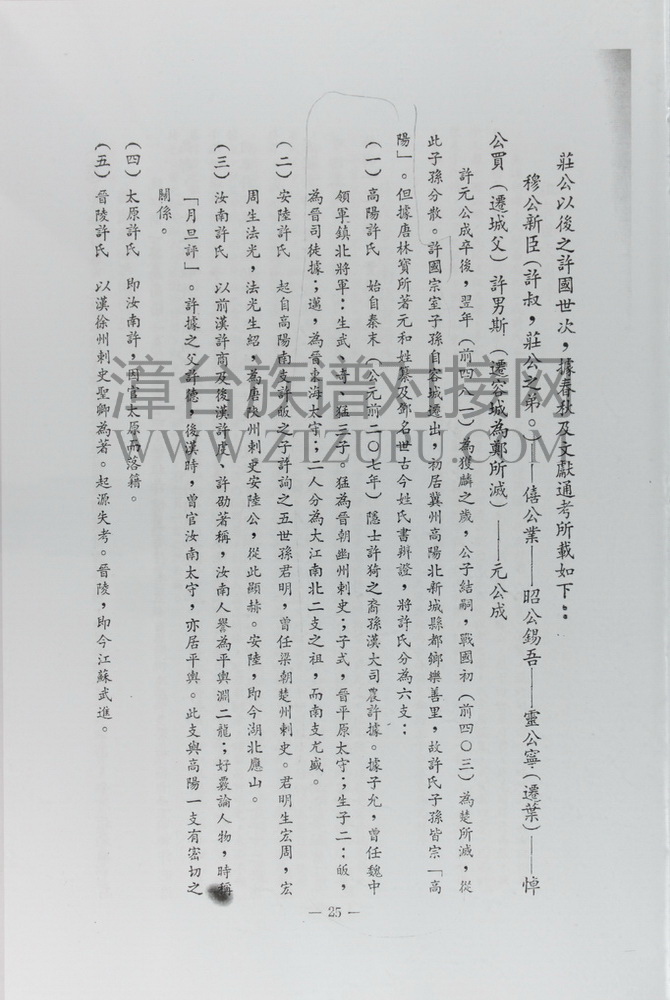 莊公以後之許國世次，據春秋及文獻通考所載如下：
穆公新臣（許叔，莊公之弟。）——僖公業——昭公錫吾——靈公寧（遷葉）——悼
公買（遷城父）許男斯（遷容城為鄭所滅）——元公成
許元公成卒後，翌年（前四八一）為獲麟之歲，公子結嗣，戰國初（前四〇三）為楚所滅，從
此子孫分散。許國宗室子孫自容城遷出，初居冀州高陽北新城縣都鄉樂善里，故許氏子孫皆宗「高
陽」。但據唐林寶所著元和姓纂及鄧名世古今姓氏書辯證，將許氏分為六支：
（一）高陽許氏 始自秦末（公元前二〇七年）隱士許猗之裔孫漢大司農許據。據子允，曾任魏中
領軍鎮北將軍：生武、奇、猛三子。猛為晉朝幽州刺史；子式，晉平原太守；生子二：皈，
為晉司徒據；邁，為晉東海太守；二人分為大江南北二支之祖，而南支尤盛。
（二）安陸許氏 起自高陽南支許皈之子許詢之五世孫君明，曾任梁朝楚州刺史。君明生宏周，宏
周生法光，法光生紹，為唐陜州刺吏安陸公，從此顯赫。安陸，即今湖北應山。
（三）汝南許氏 以前漢許商及後漢許虔、許劭著稱，汝南人譽為平輿淵二龍；好覈論人物，時稱
「月旦評」。許據之父許德，後漢時，曾官汝南太守，亦居平輿。此支與高陽一支有密切之
關係。
（四）太原許氏 即汝南許，因官太原而落籍。
（五）晉陵許氏 以漢徐州刺史聖卿為著。起源失考。晉陵，即今江蘇武進。
— 25 —
漳台族谱对接网
WWW.ZTZUPU.COM